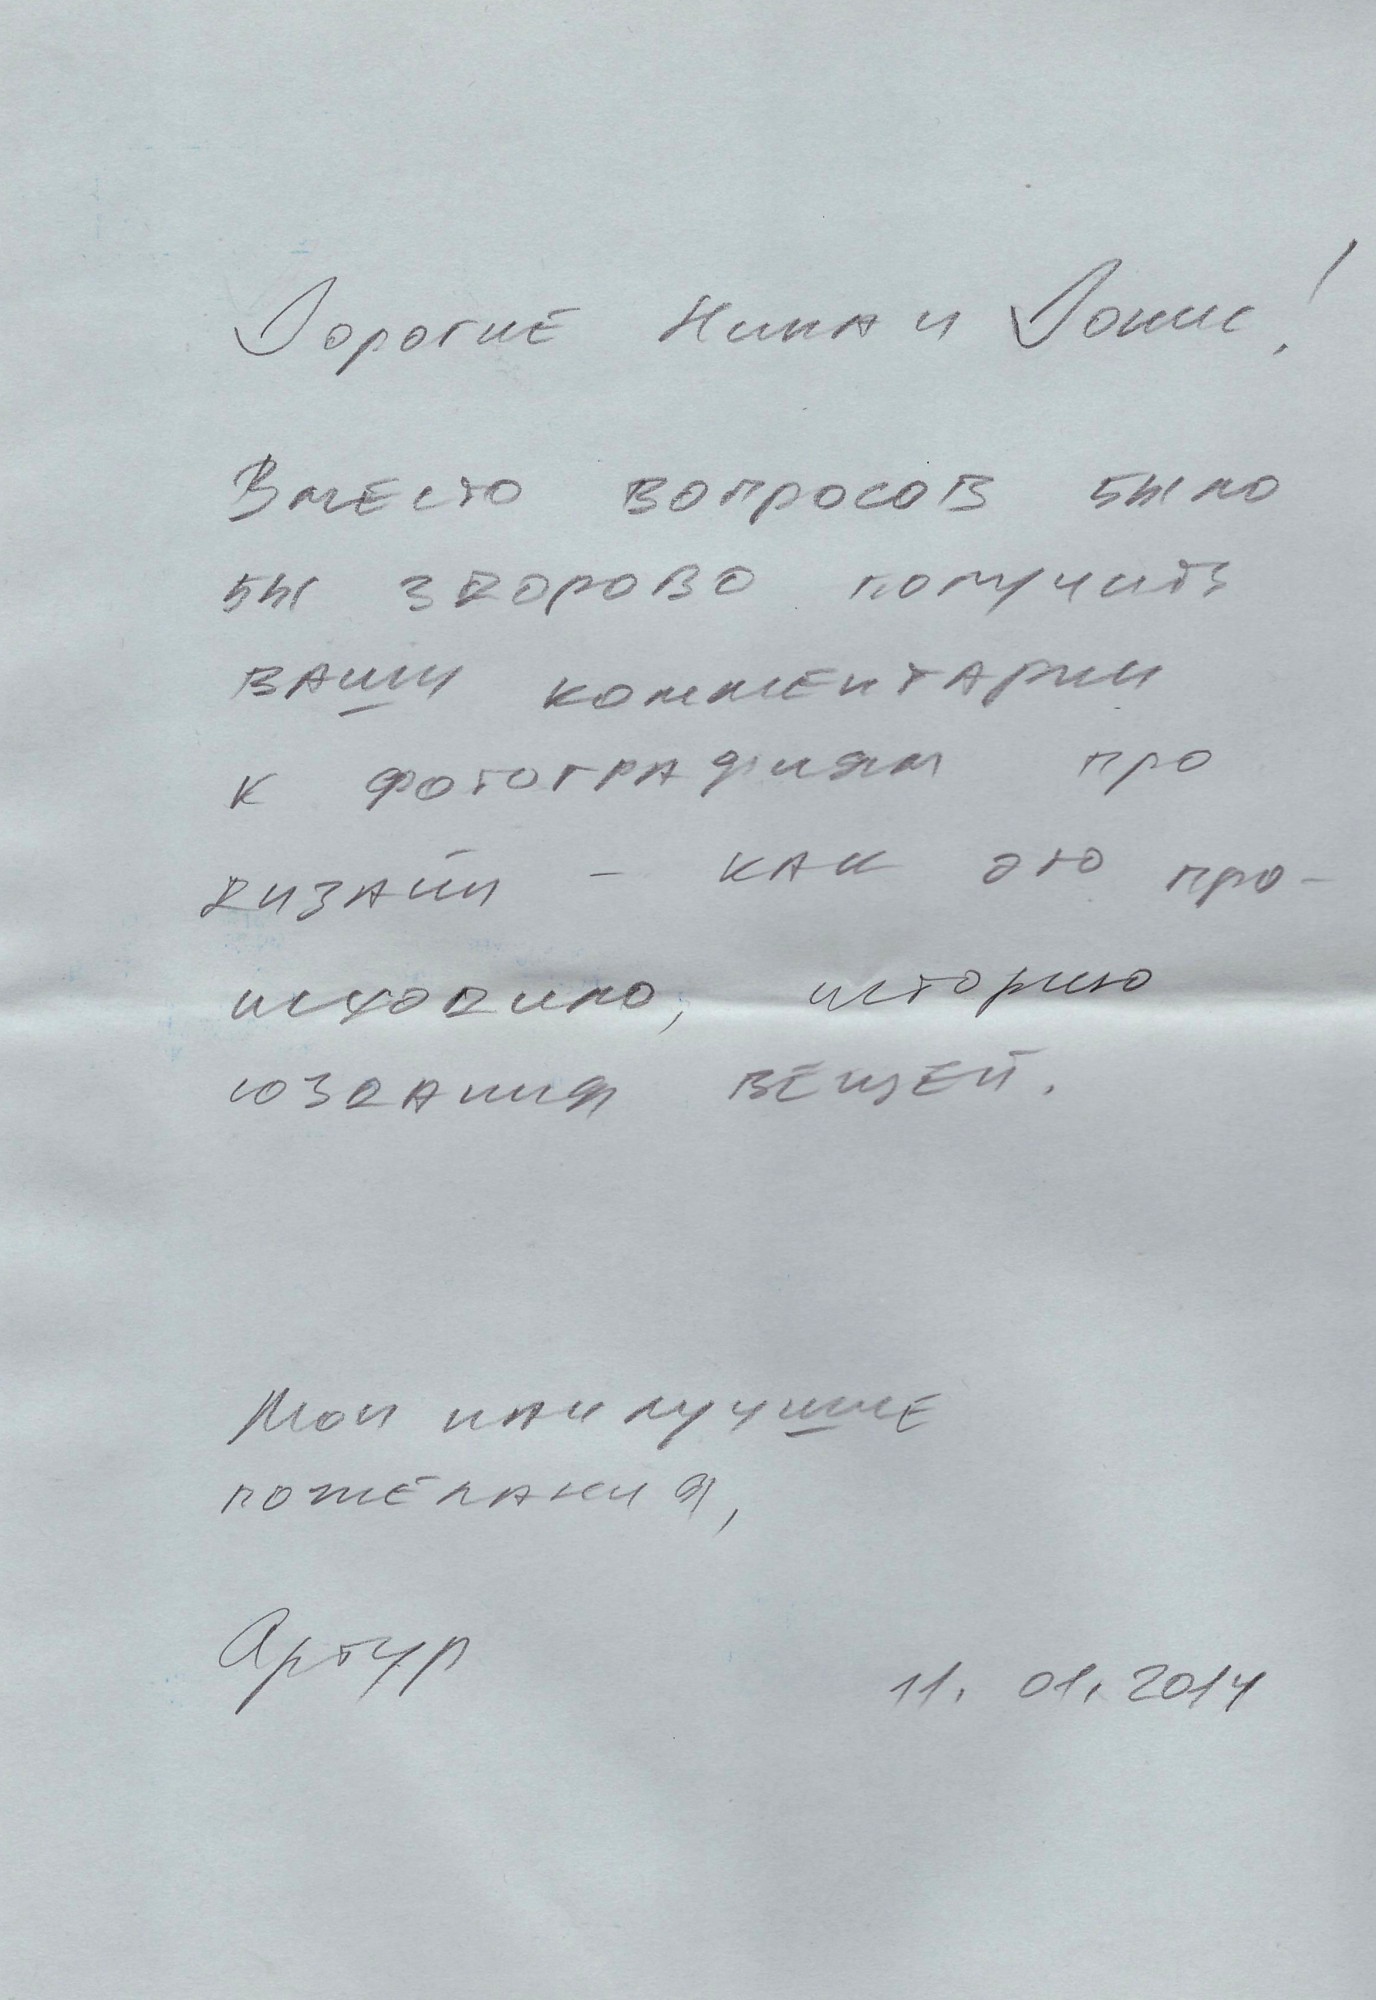 Дорогие Нина и Донис!
Вместо вопросов было
бы здорово получить
ваши комментарии
к фотографиям про
дизайн – как это про-
исходило, историю
создания вещей.
Мои наилучшие
пожелания,
Артур
11. 01. 2014